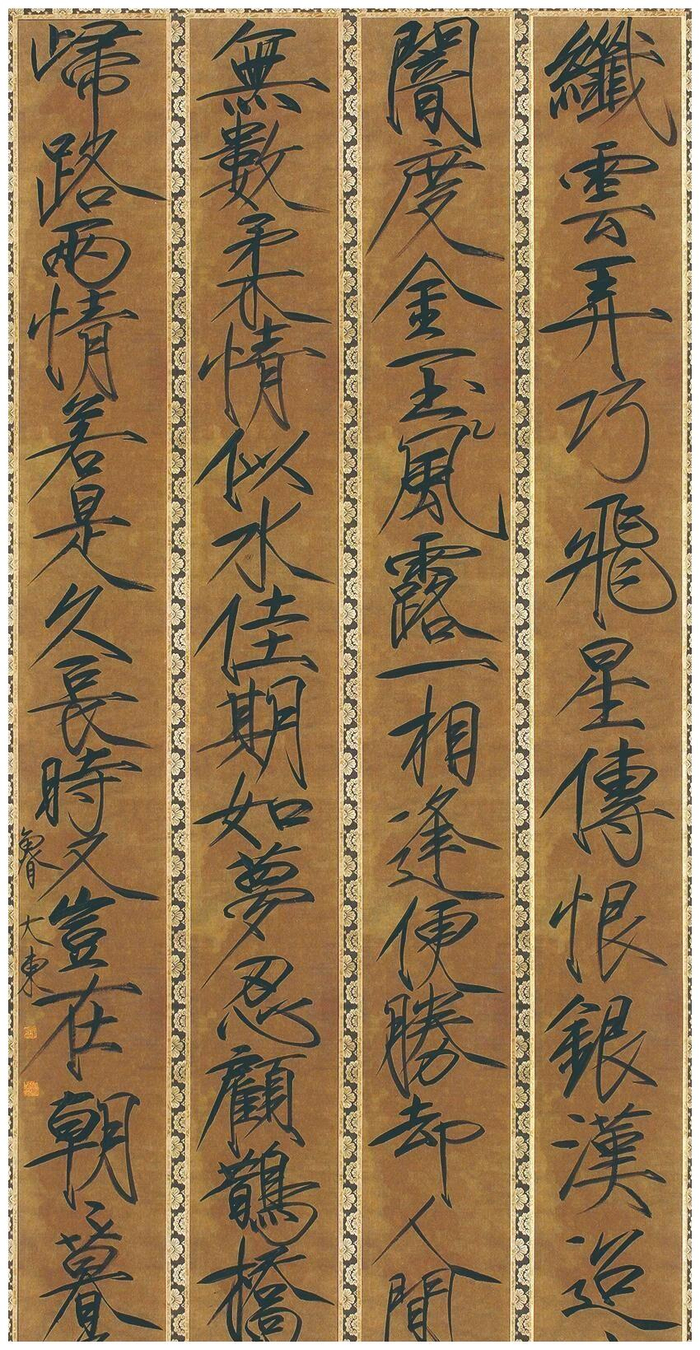 纖雲弄巧飛星傳恨銀漢迢
闇度金玉風露一相逢便勝却人間
無數柔情似水佳期如夢忍顧鵲橋
歸路兩情若是久長時又豈在朝〻暮
魯大東